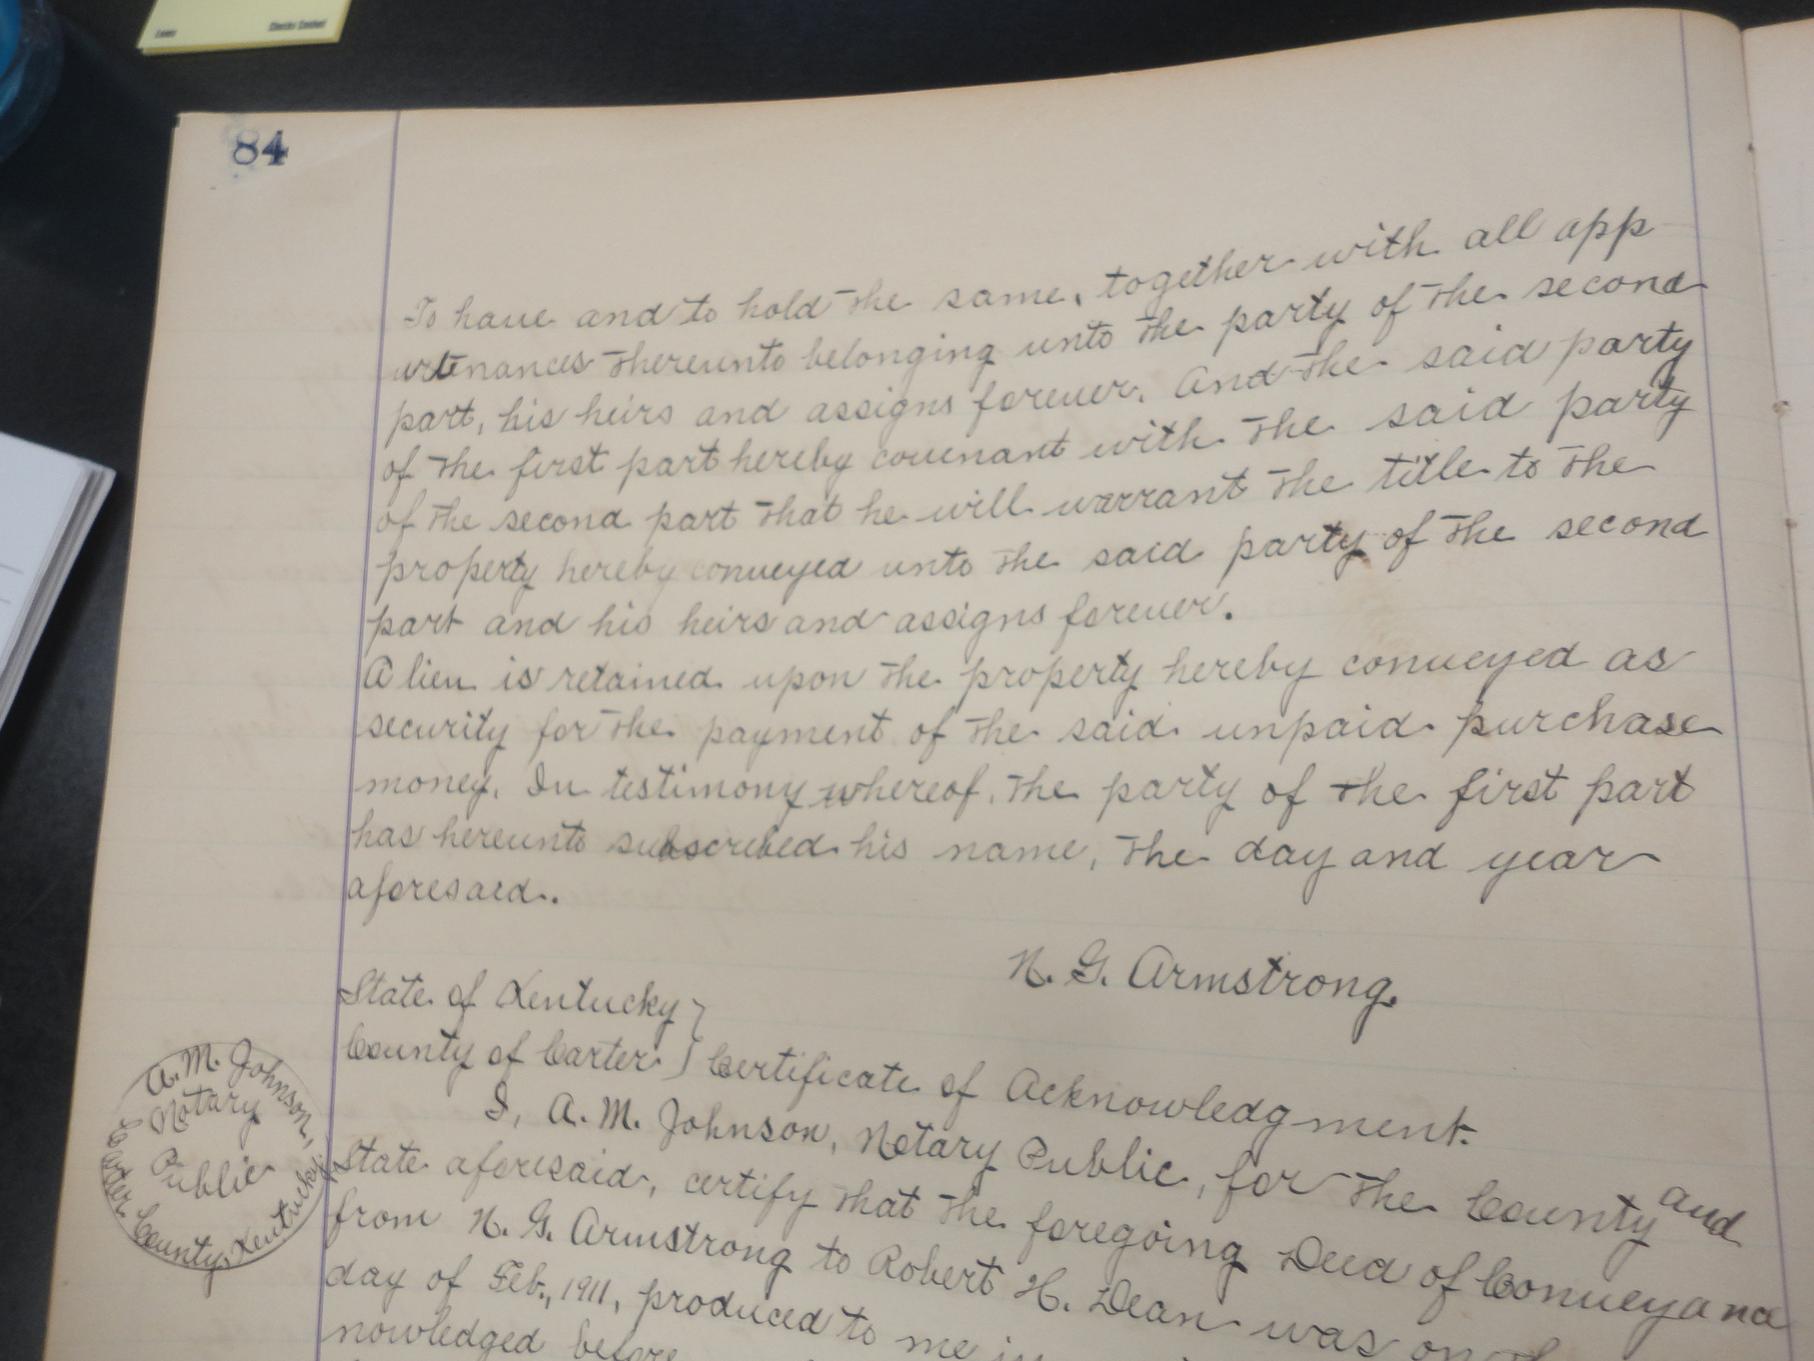 84
To have and to hold the same, together with all app
urtenances thereunto belonging unto the party of the second
part, his heirs and assigns forever. And the said party
of the first part hereby covenant with the said party
of the second part that he will warrant the title to the
property hereby conveyed unto the said party of the second
part and his heirs and assigns forever.
A lien is retained upon the property hereby conveyed as
security for the payment of the said unpaid purchase
money. In testimony whereof, the party of the first part
has hereunto subscribed his name, the day and year
aforesaid.
N. G. Armstrong.
State of Kentucky }
County of Carter } Certificate of Acknowledgment.
I, A. M. Johnson, Notary Public, for the County and
State aforesaid, certify that the foregoing Deed of Conveyance
from N. G. Armstrong to Robert H. Dean was on
day of Feb., 1911, produced to me
nowledged before
A. M. Johnson,
Notary
Public
Carter County, Kentucky